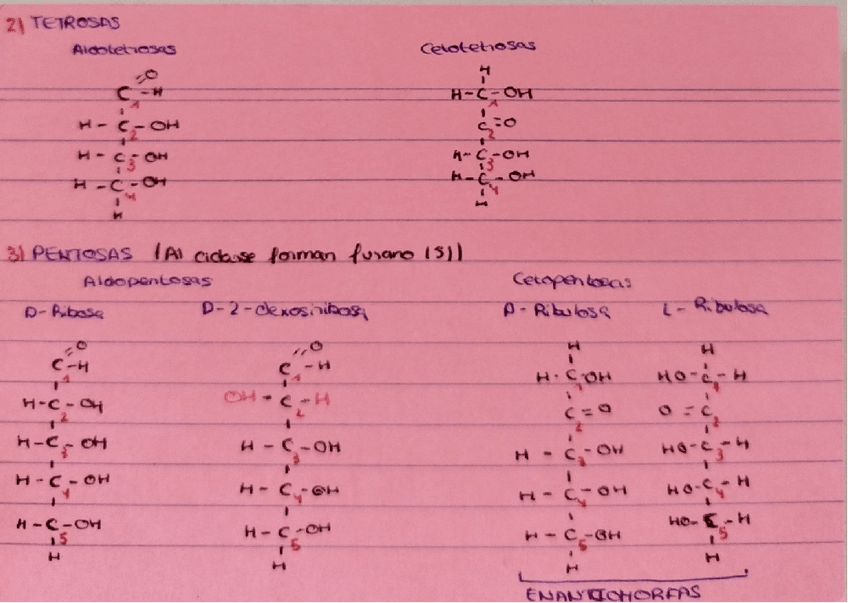 2) TETROSAS
Aldotetrosas Cetotetrosas
H
C=O -H H-C-OH
1 1
H-C-OH C=O
2 2
H-C-OH H-C-OH
3 3
H-C-OH H-C-OH
4 4
H H
3) PENTOSAS (Al ciclarse forman furano (5))
Aldopentosas Cetopentosas
D-Ribosa D-2-dexosirribosa D-Ribulosa L-Ribulosa
H H
C=O -H C=O -H H-C-OH HO-C-H
1 1 1 1
H-C-OH OH-C-H C=O O=C
2 2 2 2
H-C-OH H-C-OH H-C-OH HO-C-H
3 3 3 3
H-C-OH H-C-OH H-C-OH HO-C-H
4 4 4 4
H-C-OH H-C-OH H-C-OH HO-C-H
5 5 5 5
H H H H
ENANTIOMORFAS